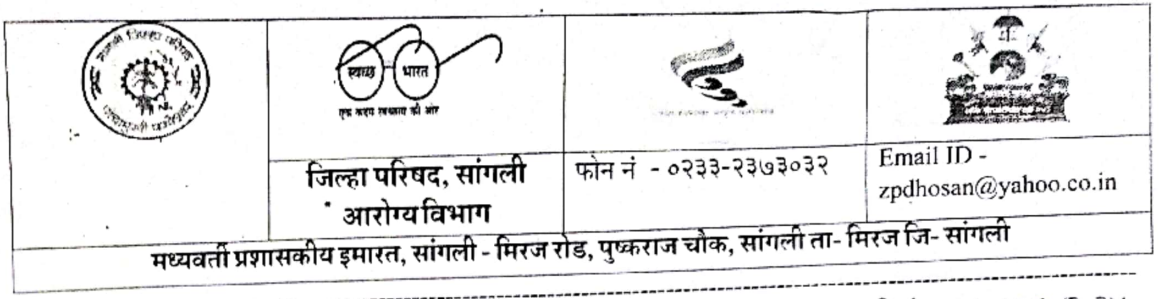 स्वच्छ भारत
एक कदम स्वच्छता की ओर
जिल्हा परिषद, सांगली
आरोग्य विभाग
फोन नं - ०२३३-२३७३०३२
Email ID -
zpdhosan@yahoo.co.in
मध्यवर्ती प्रशासकीय इमारत, सांगली - मिरज रोड, पुष्कराज चौक, सांगली ता- मिरज जि- सांगली